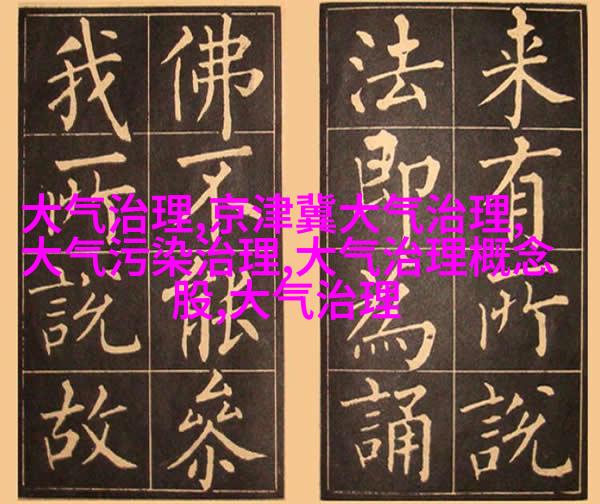 来有所說
法即為誦
佛不能參
我所說故
大气治理,京津冀大气治理,
大气污染治理,大气治理概念
股,大气治理